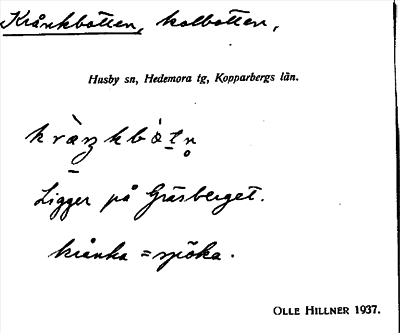 Krånkbotten, kolbotten,
Husby sn, Hedemora tg, Kopparbergs län.
Ligger på Gräsberget.
krånka = spöka.
OLLE HILLNER 1937.